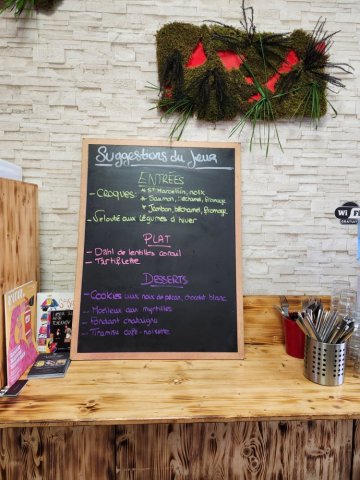 Suggestions du Jour
ENTRÉES
- CROQUES: * St Marcellin, noix
* Saumon, béchamel, fromage
* Jambon, béchamel, fromage
- Velouté aux légumes d'hiver
PLAT
- Dahl de lentilles corail
- Tartiflette
DESSERTS
- Cookies aux noix de pécan, chocolat blanc
- Moelleux aux myrtilles
- Fondant chataigne
- Tiramisu café-noisette
Wi Fi